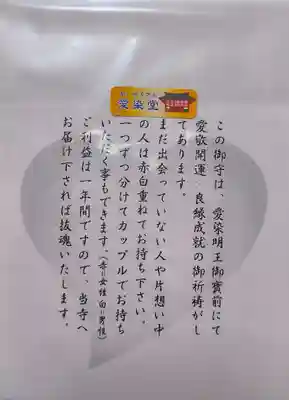 愛染堂
この御守は、愛染明王御寳前にて
愛敬開運、良縁成就の御祈祷がし
てあります。
まだ出会っていない人や片想い中
の人は赤白重ねてお持ち下さい。
一つずつ分けてカップルでお持ち
いただく事もできます。(赤=女性 白=男性)
ご利益は一年間ですので、当寺へ
お届け下されば抜魂いたします。